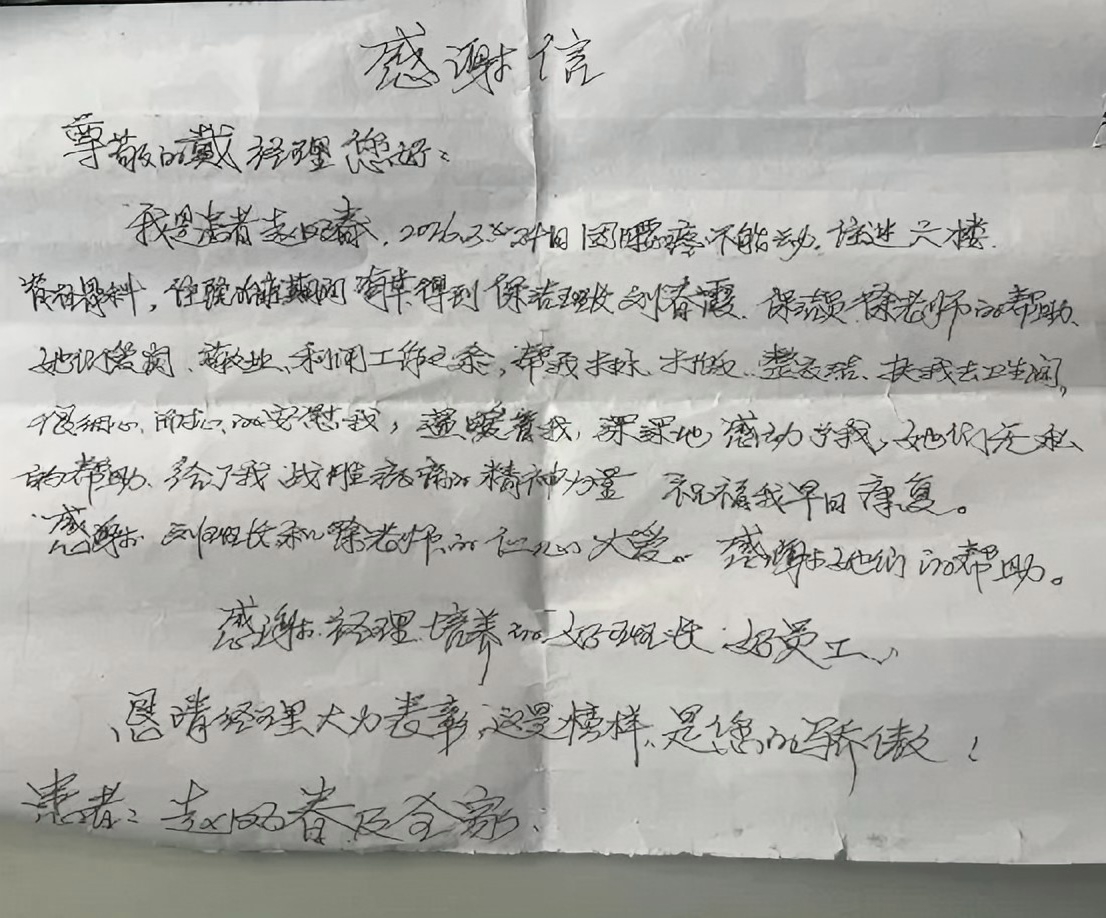 感谢信
尊敬的戴经理您好:
我是患者赵凤春,2026.3.24日因腰疼不能动.住进六楼
骨科,住院的前期间有幸得到保洁班长刘春霞、保洁员徐老师的帮助、
她们爱岗、敬业、利用工作之余,帮我打水、打饭、整衣、扶我去卫生间。
很细心、耐心的安慰我,温暖着我,深深地感动了我,她们无私
的帮助、给了我战胜病痛的精神力量 祝福我早日康复。
感谢刘班长和徐老师的仁心大爱。感谢她们的帮助。
感谢经理培养的好班长好员工、
恳请经理大力表彰,这是榜样、是您的骄傲!
患者:赵凤春及全家、